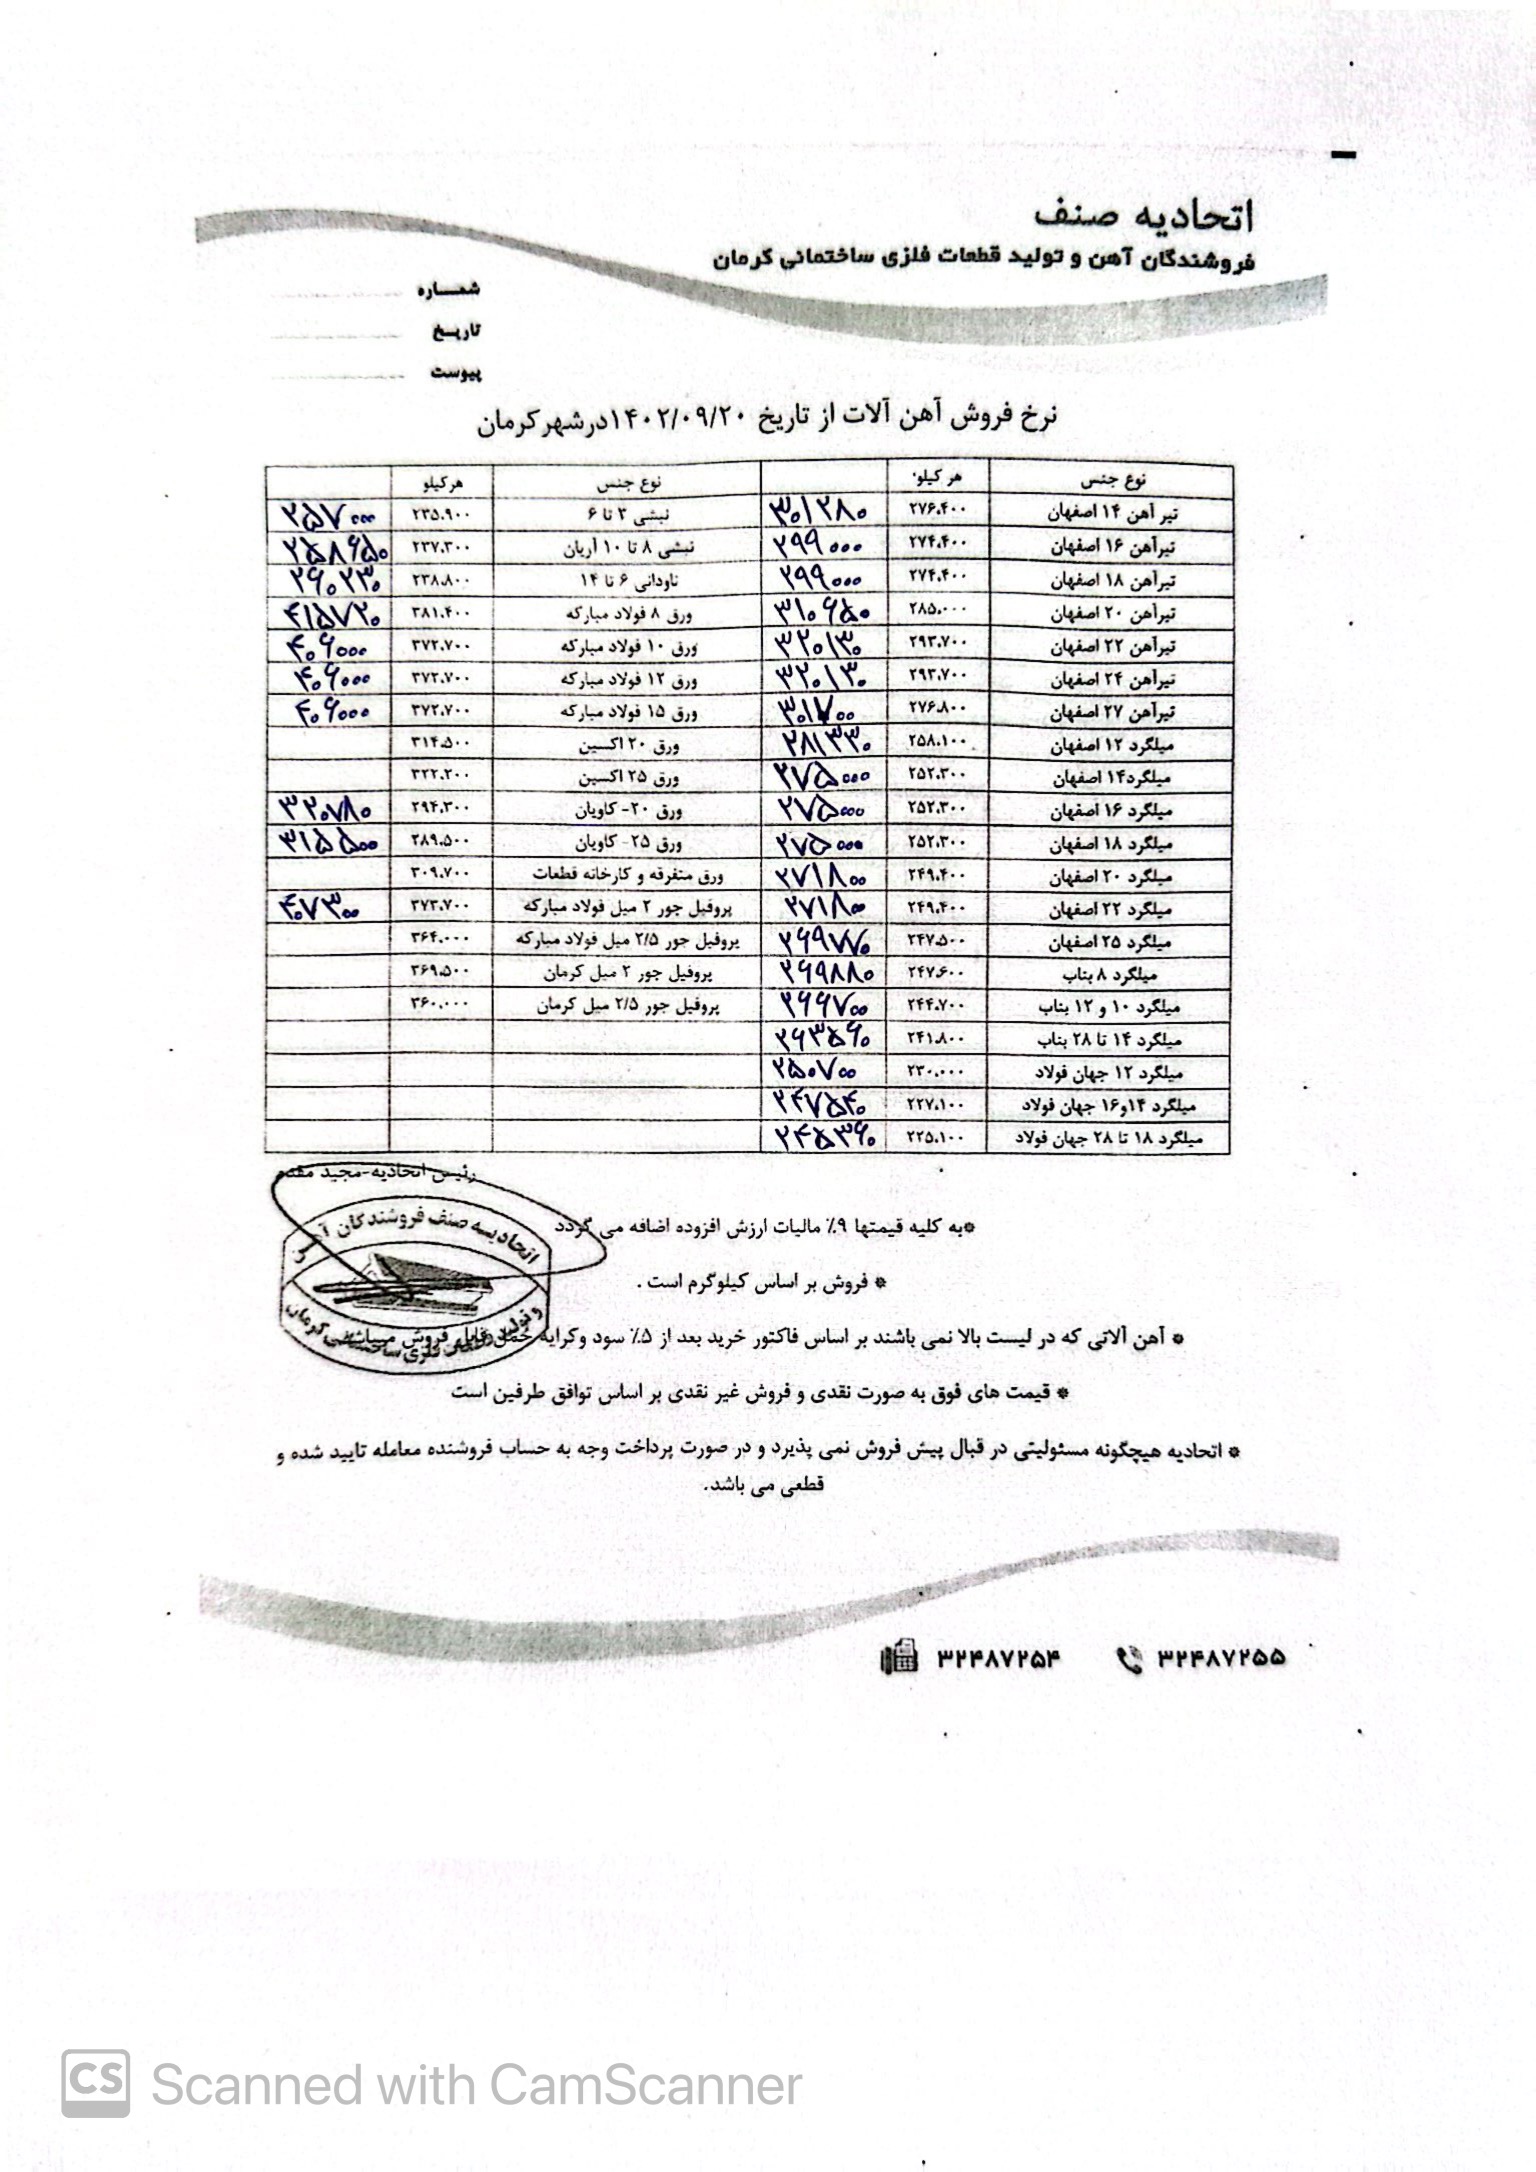 اتحادیه صنف
فروشندگان آهن و تولید قطعات فلزی ساختمانی کرمان
شمـــاره
تاریـخ
پیوست
نرخ فروش آهن آلات از تاریخ ۱۴۰۲/۰۹/۲۰درشهرکرمان
نوع جنس هر کیلو نوع جنس هرکیلو
تیر آهن ۱۴ اصفهان ۲۷۶.۴۰۰ ۳۰۱۲۸۰ نبشی ۳ تا ۶ ۲۳۵.۹۰۰ ۲۵۷۰۰۰
تیرآهن ۱۶ اصفهان ۲۷۴.۴۰۰ ۲۹۹۰۰۰ نبشی ۸ تا ۱۰ آریان ۲۳۷.۳۰۰ ۲۵۸۶۵۰
تیرآهن ۱۸ اصفهان ۲۷۴.۴۰۰ ۲۹۹۰۰۰ ناودانی ۶ تا ۱۴ ۲۳۸.۸۰۰ ۲۶۰۲۳۰
تیرآهن ۲۰ اصفهان ۲۸۵.۰۰۰ ۳۱۰۶۵۰ ورق ۸ فولاد مبارکه ۳۸۱.۴۰۰ ۴۱۵۷۲۰
تیرآهن ۲۲ اصفهان ۲۹۳.۷۰۰ ۳۲۰۱۳۰ ورق ۱۰ فولاد مبارکه ۳۷۲.۷۰۰ ۴۰۶۰۰۰
تیرآهن ۲۴ اصفهان ۲۹۳.۷۰۰ ۳۲۰۱۳۰ ورق ۱۲ فولاد مبارکه ۳۷۲.۷۰۰ ۴۰۶۰۰۰
تیرآهن ۲۷ اصفهان ۲۷۶.۸۰۰ ۳۰۱۷۰۰ ورق ۱۵ فولاد مبارکه ۳۷۲.۷۰۰ ۴۰۶۰۰۰
میلگرد ۱۲ اصفهان ۲۵۸.۱۰۰ ۲۸۱۳۳۰ ورق ۲۰ اکسین ۳۱۴.۵۰۰
میلگرد۱۴ اصفهان ۲۵۲.۳۰۰ ۲۷۵۰۰۰ ورق ۲۵ اکسین ۳۲۲.۲۰۰
میلگرد ۱۶ اصفهان ۲۵۲.۳۰۰ ۲۷۵۰۰۰ ورق ۲۰- کاویان ۲۹۴.۳۰۰ ۳۲۰۷۸۰
میلگرد ۱۸ اصفهان ۲۵۲.۳۰۰ ۲۷۵۰۰۰ ورق ۲۵- کاویان ۲۸۹.۵۰۰ ۳۱۵۵۰۰
میلگرد ۲۰ اصفهان ۲۴۹.۴۰۰ ۲۷۱۸۰۰ ورق متفرقه و کارخانه قطعات ۳۰۹.۷۰۰
میلگرد ۲۲ اصفهان ۲۴۹.۴۰۰ ۲۷۱۸۰۰ پروفیل جور ۲ میل فولاد مبارکه ۳۷۳.۷۰۰ ۴۰۷۳۰۰
میلگرد ۲۵ اصفهان ۲۴۷.۵۰۰ ۲۶۹۷۷۰ پروفیل جور ۲/۵ میل فولاد مبارکه ۳۶۴.۰۰۰
میلگرد ۸ بناب ۲۴۷.۶۰۰ ۲۶۹۸۸۰ پروفیل جور ۲ میل کرمان ۳۶۹.۵۰۰
میلگرد ۱۰ و ۱۲ بناب ۲۴۴.۷۰۰ ۲۶۶۷۰۰ پروفیل جور ۲/۵ میل کرمان ۳۶۰.۰۰۰
میلگرد ۱۴ تا ۲۸ بناب ۲۴۱.۸۰۰ ۲۶۳۵۶۰
میلگرد ۱۲ جهان فولاد ۲۳۰.۰۰۰ ۲۵۰۷۰۰
میلگرد ۱۴و۱۶ جهان فولاد ۲۲۷.۱۰۰ ۲۴۷۵۴۰
میلگرد ۱۸ تا ۲۸ جهان فولاد ۲۲۵.۱۰۰ ۲۴۵۳۶۰
رئیس اتحادیه-مجید مقدم
اتحادیه صنف فروشندگان
*به کلیه قیمتها ۹٪ مالیات ارزش افزوده اضافه می گردد
* فروش بر اساس کیلوگرم است .
* آهن آلاتی که در لیست بالا نمی باشند بر اساس فاکتور خرید بعد از ۵٪ سود وکرایه حمل قابل فروش میباشد
* قیمت های فوق به صورت نقدی و فروش غیر نقدی بر اساس توافق طرفین است
* اتحادیه هیچگونه مسئولیتی در قبال پیش فروش نمی پذیرد و در صورت پرداخت وجه به حساب فروشنده معامله تایید شده و
قطعی می باشد.
۳۲۴۸۷۲۵۵ ۳۲۴۸۷۲۵۴
CS Scanned with CamScanner